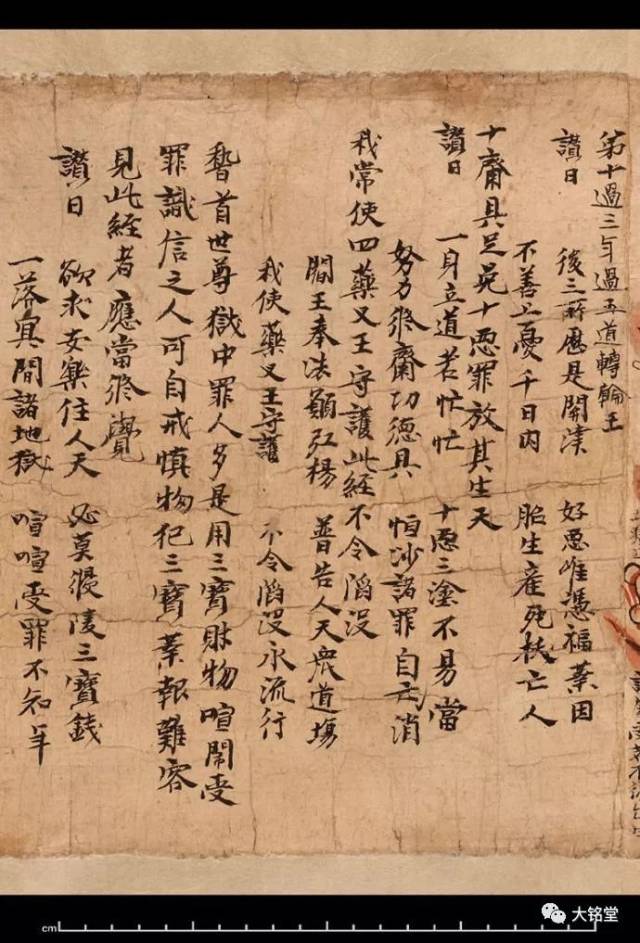 第十過三年過五道轉輪王
讃曰
後三所歷是關津 好惡唯憑福業因
不善上憂千日內 胎生產死拔亡人
十齋具足免十惡罪放其生天
讃曰
一身六道苦忙忙 十惡三塗不易當
努力修齋功德具 恒沙諸罪自亡消
我常使四藥叉王守護此經不令滔沒
閻王奉法願弘楊 普告人天衆道塲
我使藥叉王守護 不令滔没永流行
稽首世尊獄中罪人多是用三寶財物喧鬧受
罪識信之人可自戒慎物犯三寶業報難容
見此經者應當修覺
讃曰
欲求安樂住人天 必莫侵陵三寶錢
一落冥間諸地獄 喧喧受罪不知年
cm
大铭堂